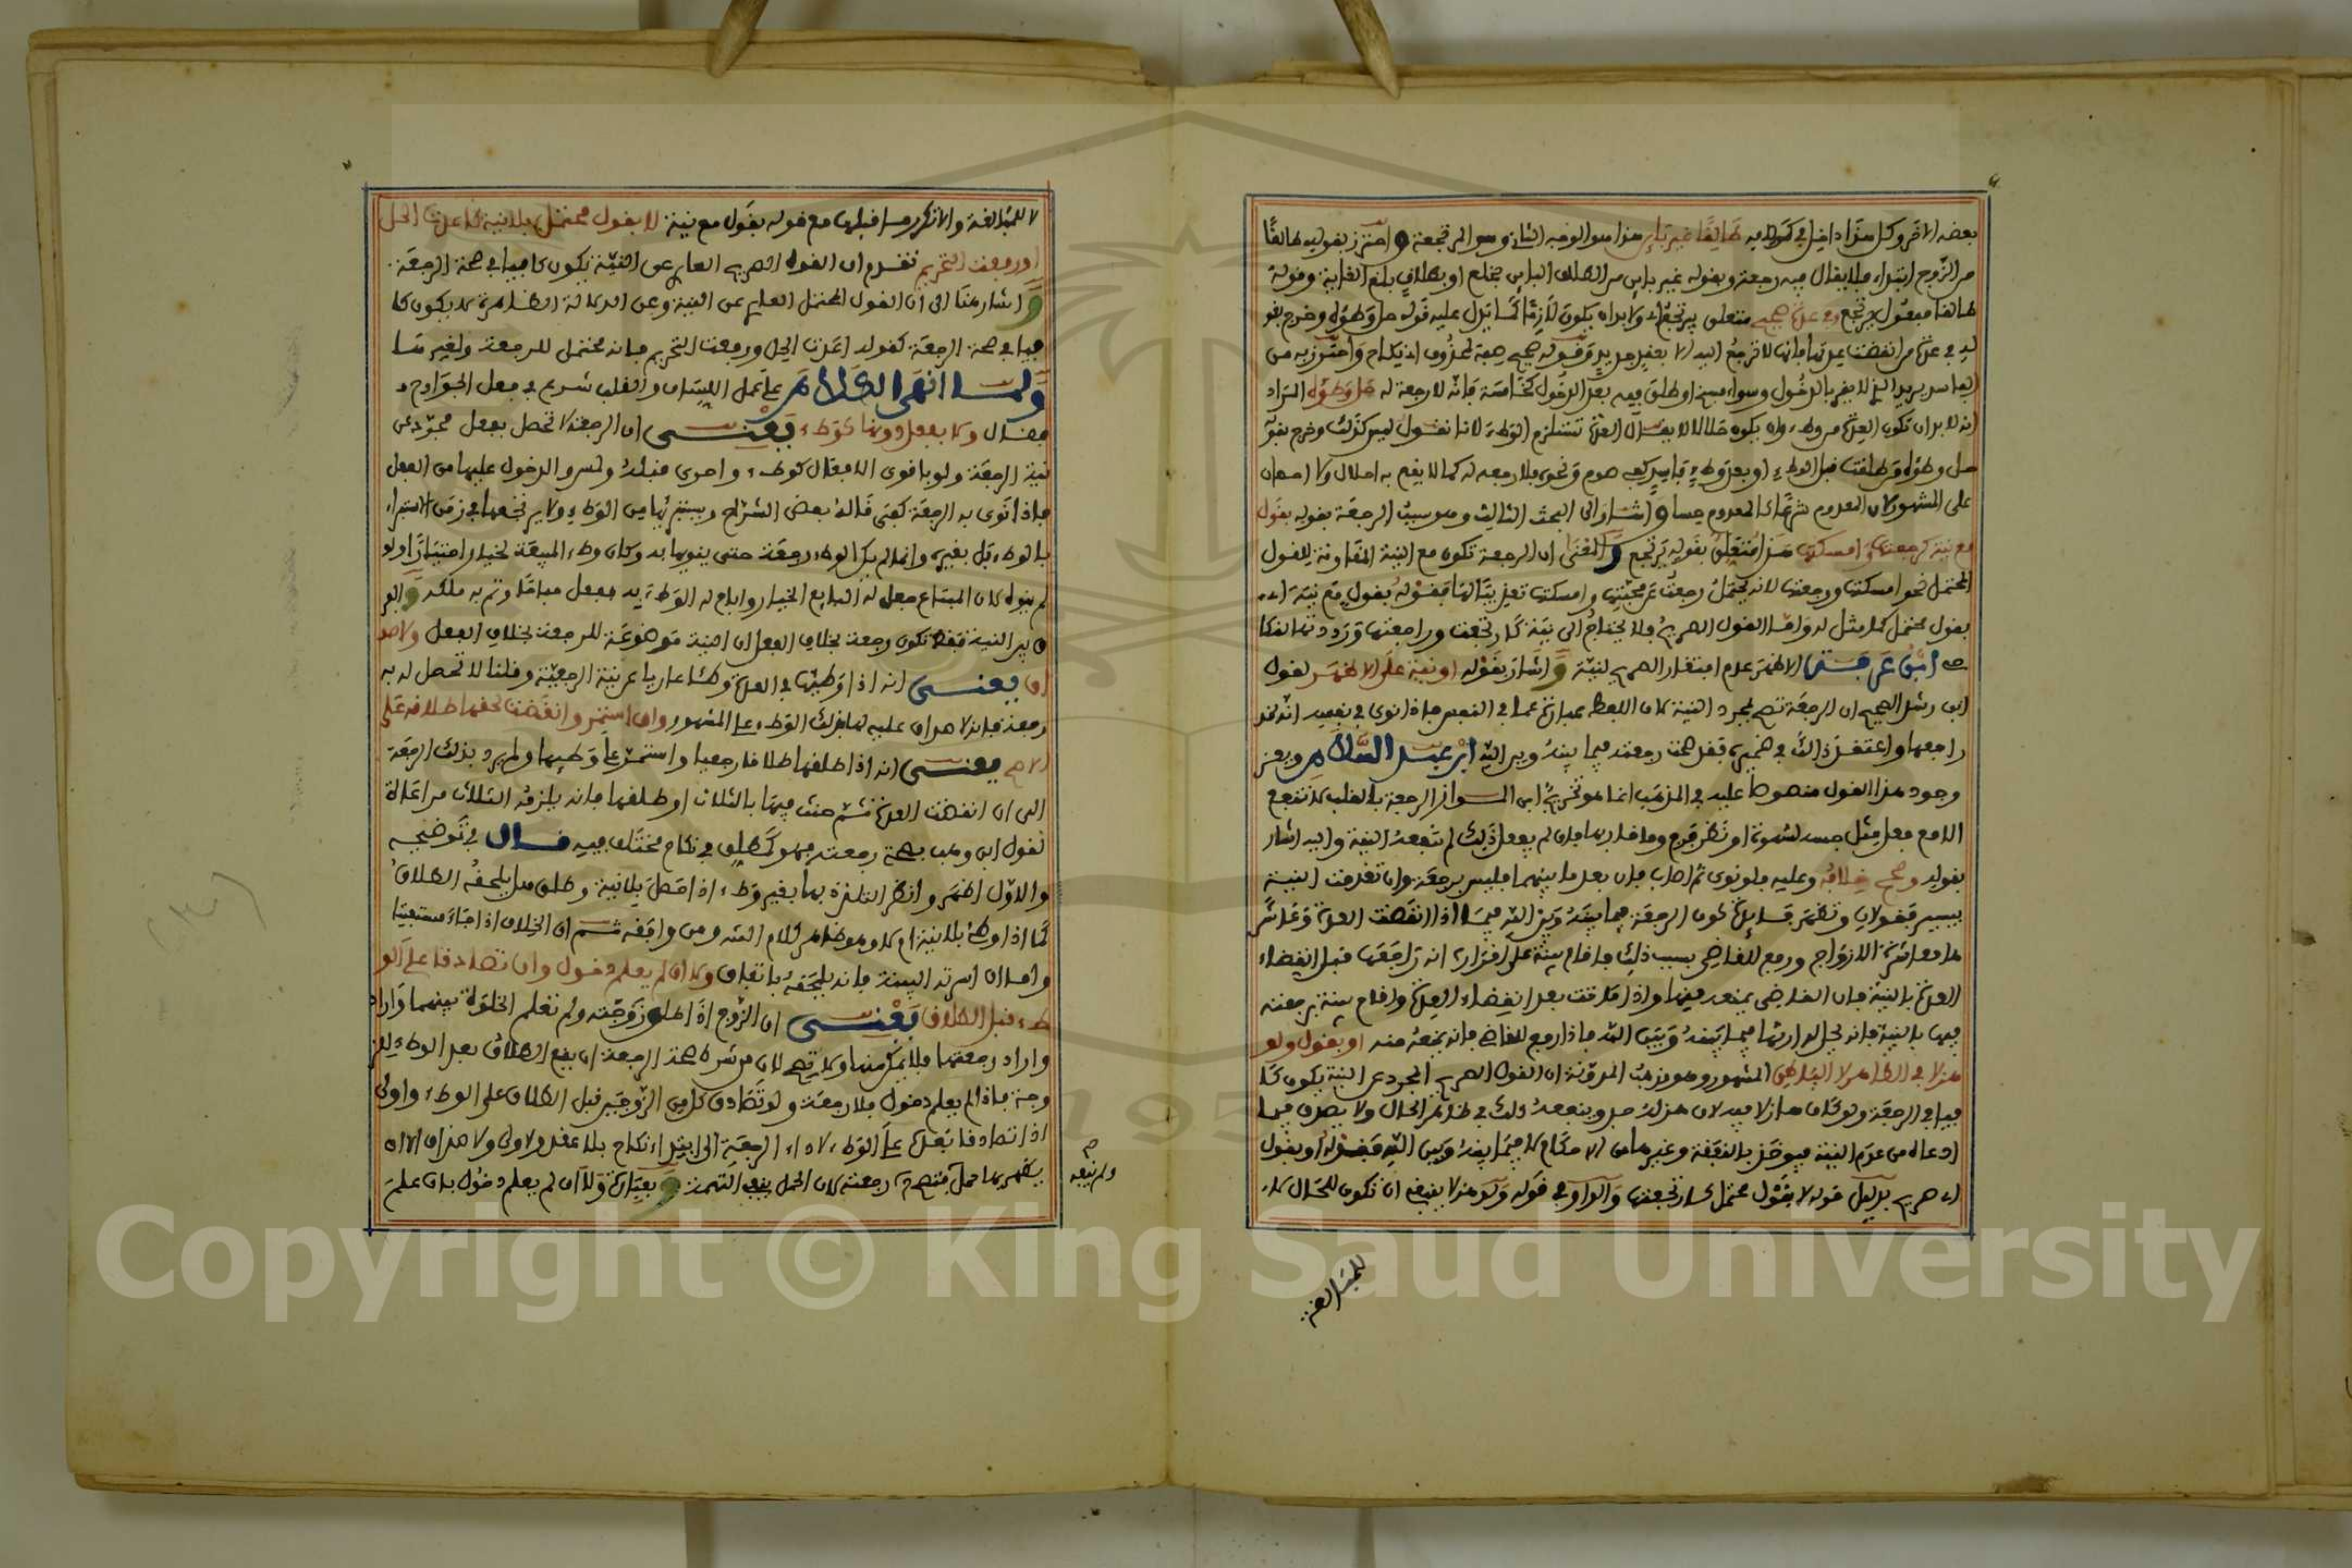 بعضه الاخر وكل هذا داخل في كونه طالقا غير باين هذا هو الوجه الثاني وهو المرتجعة واحترز بقوله طالقا
من الزوج ابتداء فلا يقال فيه رجعة وبقوله غير باين من الطلاق الباين بخلع او بطلاق بلغ الغاية وقوله
طالقا مفعول يرتجع في عدة صحيح متعلق بيرتجع ولا بد ان يكون لازما كما يدل عليه قوله حل وطؤه وخرج بقو
له في عدة من انقضت عدتها فانها لا ترتجع
انه لا بد ان تكون العدة من وطء وان يكون حلالا لا يقال العدة تستلزم الوطء لانا نقول ليس كذلك وخرج بقو
حل وطؤه من طلقت قبل الوطء او بعد وطء فاسد كفي صوم ونحوه فلا رجعة له كما لا يقع به احلال ولا احصان
على المشهور لان المعدوم شرعا كالمعدوم حسا واشار الى البحث الثالث وهو سبب الرجعة بقوله بقول
مع نية كرجعت وامسكتها هذا متعلق بقوله يرتجع والمعنى ان الرجعة تكون مع النية المقارنة للقول
المحتمل نحو امسكتها ورجعتها لانه يحتمل رجعت عن محبتها وامسكتها تعذيبا لها فقوله بقول مع نية اي
بقول محتمل كما مثل له واما القول الصريح فلا يحتاج الى نية كارتجعت وراجعتها ورددتها لنكا
حي ابن عرفة الاظهر عدم افتقار الصريح لنية واشار بقوله او نية على الاظهر لقول
ابن رشد الصحيح ان الرجعة تصح بمجرد النية لان اللفظ عبارة عما في النفس فاذا نوى في نفسه انه قد
راجعها واعتقد ذلك في ضميره فقد صحت رجعته فيما بينه وبين الله ابن عبد السلام ويعز
وجود هذا القول منصوصا عليه في المذهب انما هو تخريج ابن المواز الرجعة بالقلب لا تنفع
الا مع فعل مثل جسه لشهوة او نظر فرج وما قاربها فان لم يفعل ذلك لم تنفعه النية واليه اشار
بقوله وصحح خلافه وعليه فلو نوى ثم اصاب فان بعد ما بينهما فليس برجعة وان تقدمت النية
بيسير فقولان وتظهر فايدة كون الرجعة فيما بينه وبين الله فيما اذا انقضت العدة وعاشر
ها معاشرة الازواج ورفع للقاضي بسبب ذلك فاقام بينة على اقراره انه راجعها قبل انقضاء
العدة بالنية فان القاضي يمنعه منها واذا ماتت بعد انقضاء العدة واقام بينة برجعته
فيها بالنية فانه يحل له ارثها فيما بينه وبين الله فاذا رفع للقاضي فانه يمنعه منه او بقول ولو
هزلا في الظاهر لا الباطن المشهور وهو مذهب المدونة ان القول الصريح المجرد عن النية يكون كا
فيا في الرجعة ولو كان هازلا فيه لان هزله جد وينفعه ذلك في ظاهر الحال ولا يصدق فيما
ادعاه من عدم النية فيوخذ بالنفقة وغيرها من الاحكام لا فيما بينه وبين الله فقوله او بقول
اي صريح بدليل قوله لا بقول محتمل كارتجعتها والواو في قوله ولو هزلا ينبغي ان تكون للحال لا
للمبالغة
لا للمبالغة والا تكرر مع ما قبلها مع قوله بقول مع نية لا بقول محتمل بلا نية كاعدت الحل
او رفعت التحريم تقدم ان القول الصريح العاري عن النية يكون كافيا في صحة الرجعة
واشار هنا الى ان القول المحتمل العاري عن النية وعن الدلالة الظاهرة لا يكون كا
فيا في صحة الرجعة كقوله اعدت الحل ورفعت التحريم فانه محتمل للرجعة ولغيرها
ولما انهى الكلام على عمل اللسان والقلب شرع في فعل الجوارح
فقال ولا بفعل دونها كوطء يعني ان الرجعة لا تحصل بفعل مجرد عن
نية الرجعة ولو باقوى الافعال كوطء واحرى قبلة ولمس والدخول عليها من الفعل
فاذا نوى به الرجعة كفى قاله بعض الشراح ويستبرئها من الوطء ولا يرتجعها في زمن الاستبراء
بالوطء بل بغيره وانما لم يكن الوطء رجعة حتى ينويها به وكان وطء المبيعة بخيار اختيارا ولو
لم ينوه لان المبتاع جعل له البايع الخيار واباح له الوطء به ففعل مباحا وتم به ملكه والفر
ق بين النية فقط تكون رجعة بخلاف الفعل ان النية موضوعة للرجعة بخلاف الفعل ولا صد
اق يعني انه اذا وطئها في العدة وطئا عاريا عن نية الرجعة وقلنا لا تحصل له به
رجعة فانه لا صداق عليه لها بذلك الوطء على المشهور وان استمر وانقضت لحقها طلاقه على
الاصح يعني انه اذا طلقها طلاقا رجعيا واستمر على وطئها ولم يرد بذلك الرجعة
الى ان انقضت العدة ثم حنث فيها بالثلاث او طلقها فانه يلزمه الثلاث مراعاة
لقول ابن وهب بصحة رجعته فهو كمطلق في نكاح مختلف فيه قال في توضيحه
والاول اظهر وانظر التلذذ بها بغير وطء اذا حصل بلا نية وطلق هل يلحقه الطلاق
كما اذا وطئ بلا نية ام لا وهو ظاهر كلام المؤلف ومن وافقه ثم ان الخلاف اذا جاء مستفتيا
واما ان اسرته البينة فانه يلحقه باتفاق ولا ان لم يعلم دخول وان تصادقا على الو
طء قبل الطلاق يعني ان الزوج اذا طلق زوجته ولم تعلم الخلوة بينهما واراد
واراد رجعتها فلا يمكن منها ولا تصح لان من شرط صحة الرجعة ان يقع الطلاق بعد الوطء للز
وجة فاذا لم يعلم دخول فلا رجعة ولو تصادق كل من الزوجين قبل الطلاق على الوطء واولى
اذا تصادقا بعده على الوطء لاداء الرجعة الى ابتداء نكاح بلا عقد ولا ولي ولا صداق الا ان
يظهر بها حمل فتصح رجعته لان الحمل ينفي التهمة وبعبارة ولا ان لم يعلم دخول بان علم
ولم ينفه